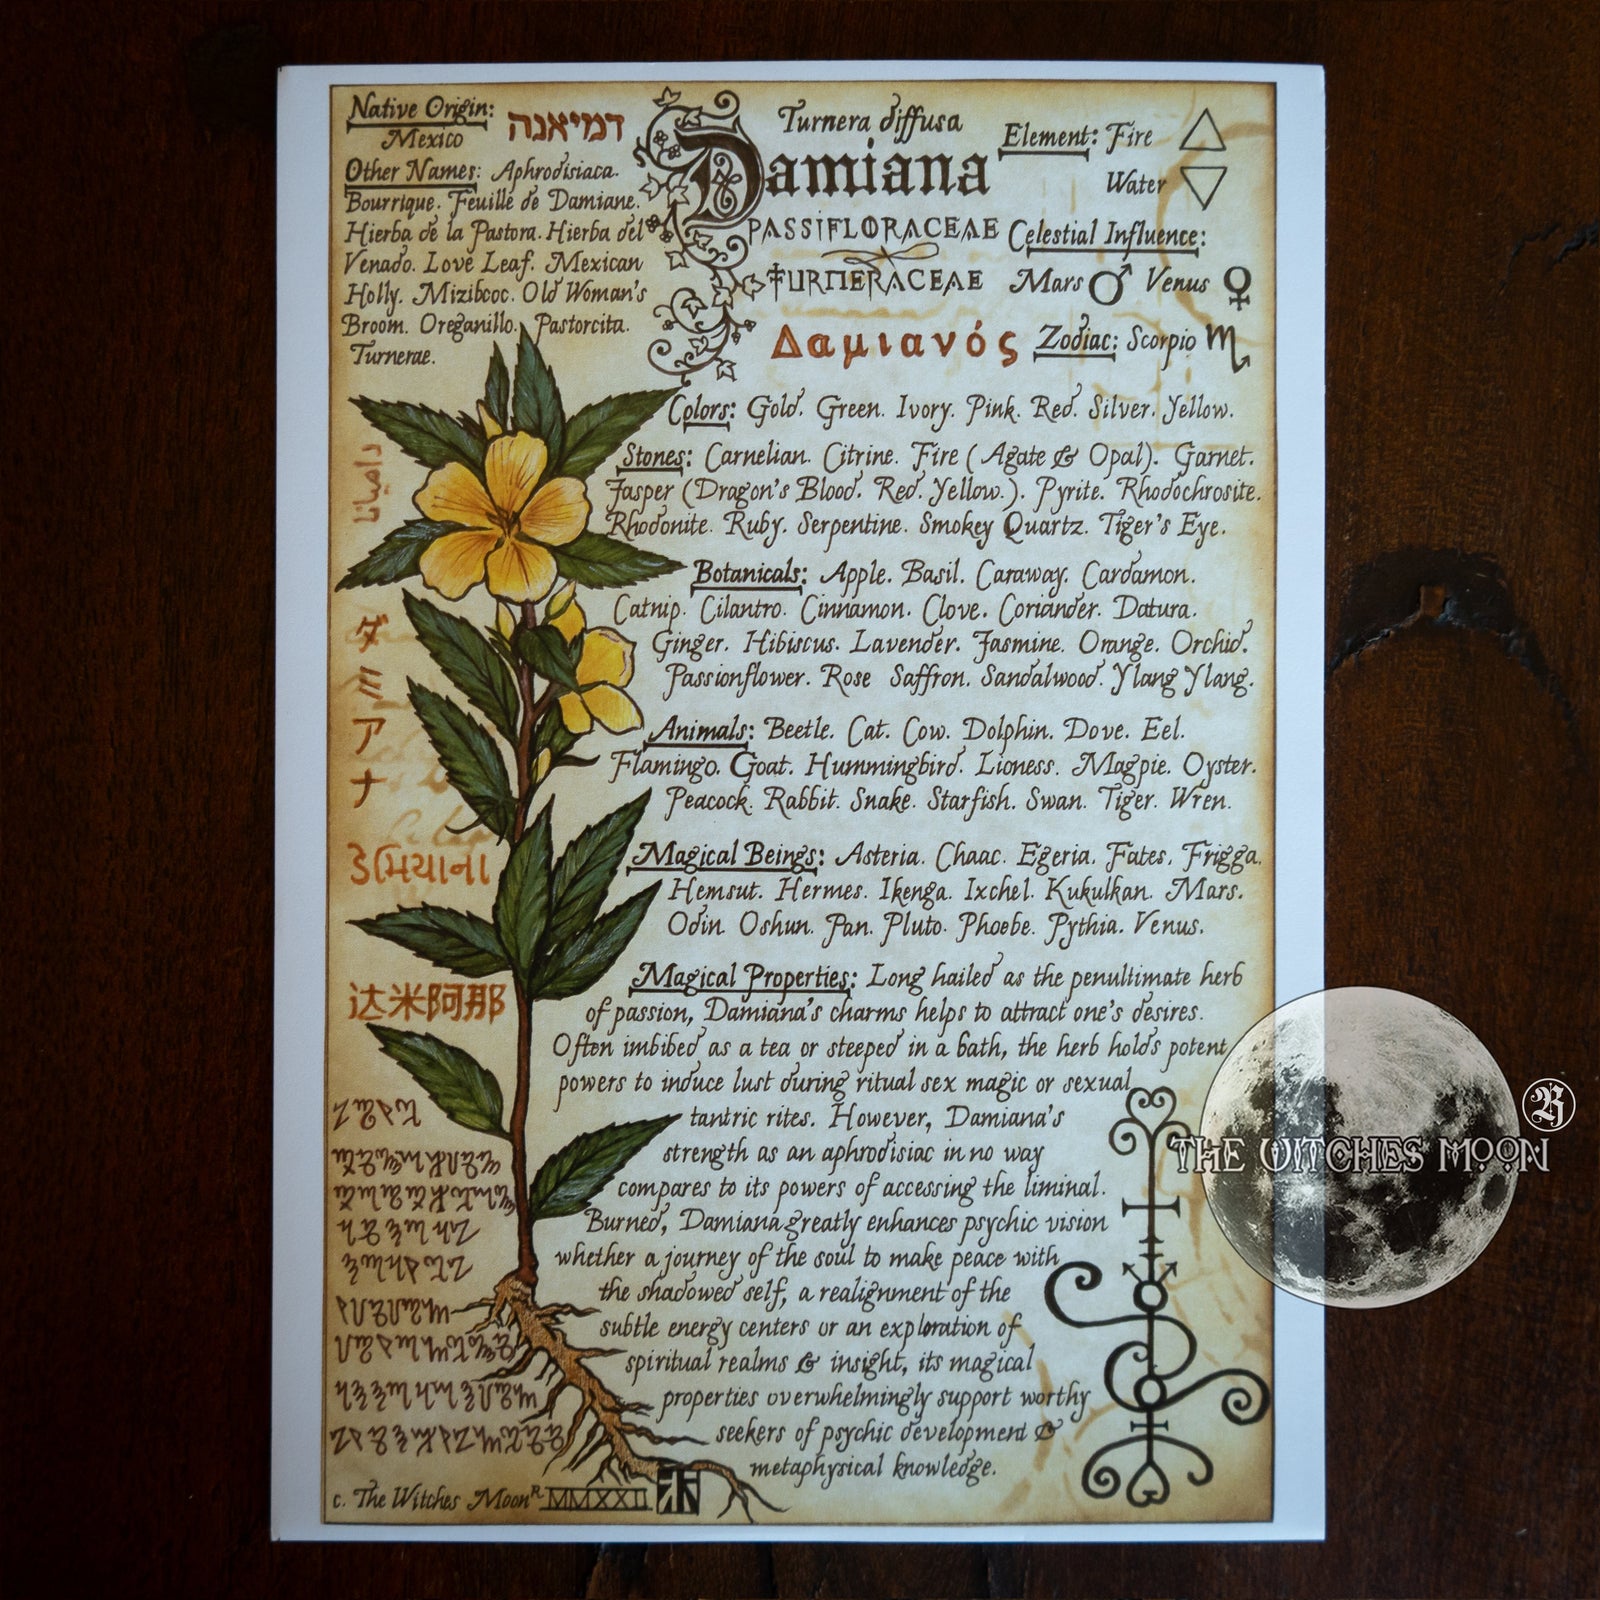 Native Origin:
Mexico
דמיאנה
Other Names: Aphrodisiaca.
Bourrique. Feuille de Damiane.
Hierba de la Pastora. Hierba del
Venado. Love Leaf. Mexican
Holly. Mizibcoc. Old Woman's
Broom. Oreganillo. Pastorcita.
Turnerae.
Turnera diffusa
Damiana
PASSIFLORACEAE
TURNERACEAE
Δαμιανός
Element: Fire
Water
Celestial Influence:
Mars ♂ Venus ♀
Zodiac: Scorpio ♏
Colors: Gold. Green. Ivory. Pink. Red. Silver. Yellow.
Stones: Carnelian. Citrine. Fire (Agate & Opal). Garnet.
Jasper (Dragon's Blood. Red. Yellow.). Pyrite. Rhodochrosite.
Rhodonite. Ruby. Serpentine. Smokey Quartz. Tiger's Eye.
Botanicals: Apple. Basil. Caraway. Cardamon.
Catnip. Cilantro. Cinnamon. Clove. Coriander. Datura.
Ginger. Hibiscus. Lavender. Jasmine. Orange. Orchid.
Passionflower. Rose Saffron. Sandalwood. Ylang Ylang.
Animals: Beetle. Cat. Cow. Dolphin. Dove. Eel.
Flamingo. Goat. Hummingbird. Lioness. Magpie. Oyster.
Peacock. Rabbit. Snake. Starfish. Swan. Tiger. Wren.
Magical Beings: Asteria. Chaac. Egeria. Fates. Frigga.
Hemsut. Hermes. Ikenga. Ixchel. Kukulkan. Mars.
Odin. Oshun. Pan. Pluto. Phoebe. Pythia. Venus.
Magical Properties: Long hailed as the penultimate herb
of passion, Damiana's charms helps to attract one's desires.
Often imbibed as a tea or steeped in a bath, the herb holds potent
powers to induce lust during ritual sex magic or sexual
tantric rites. However, Damiana's
strength as an aphrodisiac in no way
compares to its powers of accessing the liminal.
Burned, Damiana greatly enhances psychic vision
whether a journey of the soul to make peace with
the shadowed self, a realignment of the
subtle energy centers or an exploration of
spiritual realms & insight, its magical
properties overwhelmingly support worthy
seekers of psychic development &
metaphysical knowledge.
داميانا
ダミアナ
达米阿那
c. The Witches Moon R MMXXII
THE WITCHES MOON